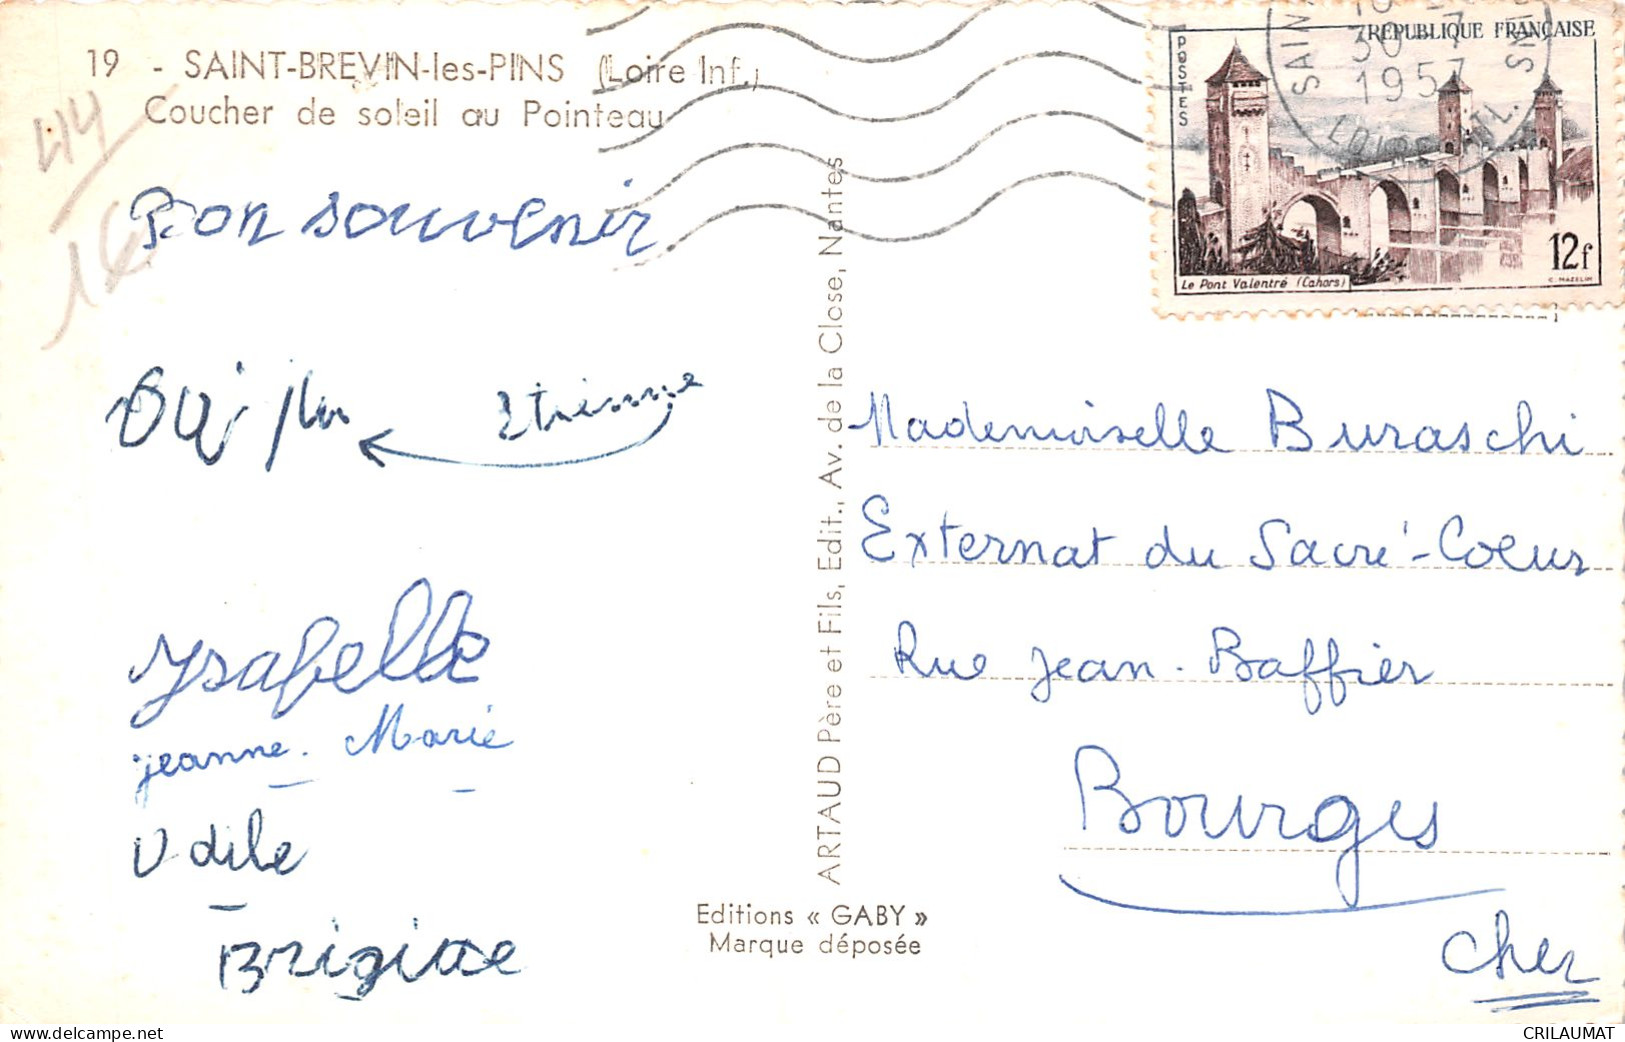 19 - SAINT-BREVIN-les-PINS (Loire Inf.)
Coucher de soleil au Pointeau
44
16
Bon souvenir
Etienne
Ysabelle
Jeanne-Marie
Odile
Brigitte
ARTAUD Père et Fils, Edit., Av. de la Close, Nantes
Editions « GABY »
Marque déposée
REPUBLIQUE FRANÇAISE
POSTES
12f
Le Pont Valentré (Cahors)
C. MAZELIN
30 7
1957
Mademoiselle Buraschi
Externat du Sacré-Coeur
Rue Jean-Baffier
Bourges
Cher
www.delcampe.net
CRILAUMAT